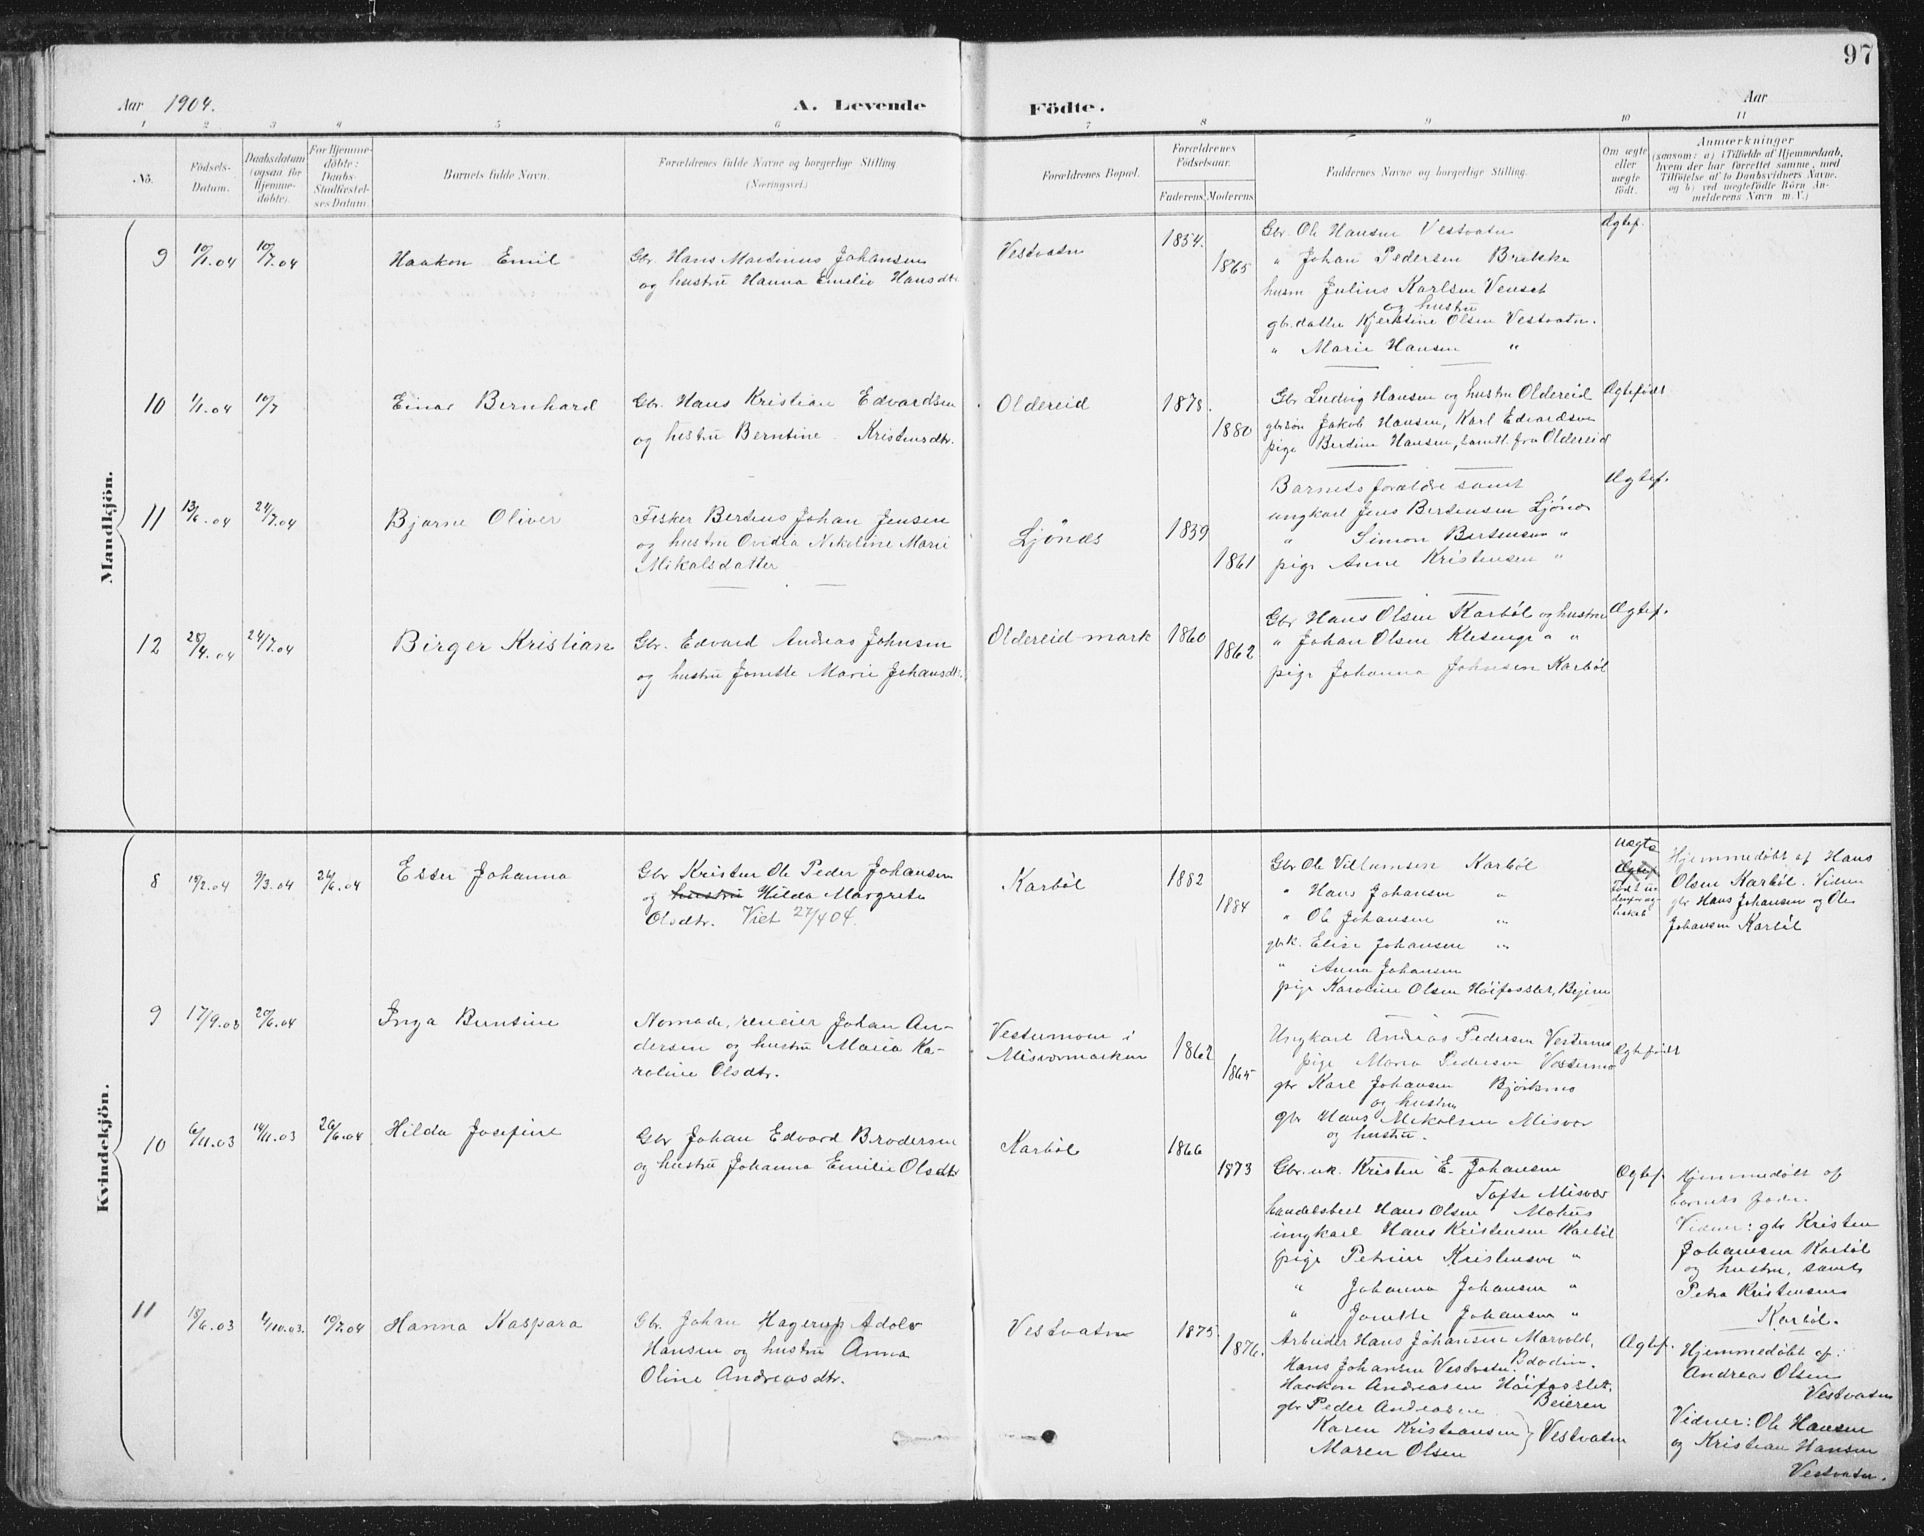 97
Aar 1904. A. Levende Födte. Aar
1 2 3 4 5 6 7 8 9 10 11
No. Födsels-Datum. Daabsdatum (ogsaa for Hjemmedöbte). For Hjemmedöbte: Daabs-Stadfestelses Datum. Barnets fulde Navn. Forældrenes fulde Navne og borgerlige Stilling (Næringsvei.) Forældrenes Bopæl. Forældrenes Födselsaar. Faderens Moderens Faddernes Navne og borgerlige Stilling. Om ægte eller uægte födt. Anmærkninger (saasom: a) i Tilfælde af Hjemmedaab, hvem der har forrettet samme, med Tilföielse af to Daabsvidners Navne, og b) ved uægtefödte Börn Anmelderens Navn m. V.)
Mandkjön.
9 10/1.04 10/7.04 Haakon Emil
Gbr. Hans Martinius Johansen
og hustru Hanna Emilie Hansdtr.
Vestvatn 1854. 1865
Gbr. Ole Hansen Vestvatn
" Johan Pedersen Brekke
husm Julius Karlsen Venset
og hustru
gb.datter Kjerstine Olsen Vestvatn.
" Marie Hansen "
Ægtef.
10 1/1.04 10/7 Einar Bernhard
Gbr. Hans Kristian Edvardsen
og hustru Berntine Kristensdtr.
Oldereid 1878. 1880
Gbr Ludvig Hansen og hustru Oldereid
gbrsön Jakob Hansen, Karl Edvardsen
pige Berdine Hansen, samtl. fra Oldereid
Ægtefödt
11 13/6.04 24/7.04 Bjarne Oliver
Fisker Bertens Johan Jensen
og hustru Ovidia Nikoline Marie
Mikalsdatter
Ljönes 1859 1861
Barnets forældre samt
ungkarl Jens Bertensen Ljönes
" Simon Bertensen "
pige Anne Kristensen "
Ægtef.
12 28/4.04 24/7.04 Birger Kristian
Gbr. Edvard Andreas Johnsen
og hustru Jonette Marie Johansdtr.
Oldereid-mark 1860 1862
Gbr Hans Olsen Karböl og hustru
" Johan Olsen " "
pige Johanna Johnsen Karböl
Ægtef.
Kvindekjön.
8 19/2.04 9/3.04 26/6.04 Ester Johanna
Gbr Kristen Ole Peder Johansen
og hustru Hilda Margrete
Olsdtr. Viet 27/4 04.
Karböl 1882 1884
Gbr Ole Villumsen Karböl
" Hans Johansen "
" Ole Johansen "
gbk. Elise Johansen "
" Anna Johansen
pige Karoline Olsen Höifosslet, Bejern
Uægte
Ægtef
födt udenfor ægteskab
Hjemmedöbt af Hans
Olsen Karböl. Vidner
gbr Hans Johansen og Ole
Johansen Karböl
9 17/9.03 26/6.04 Inga Berntine
Nomade, reneier Johan Andersen
og hustru Maria Karoline
Olsdtr.
Vestermoen i
Misværmarken 1862 1865
Ungkarl Andreas Pedersen Vestermo
pige Maria Pedersen Vestermo
gbr Karl Johansen Björkmo
og hustru
gbr Hans Mikalsen Misvær
og hustru.
Ægtefödt
10 6/11.03 14/11.03 26/6.04 Hilda Josefine
Gbr Johan Edvard Brodersen
og hustru Johanna Emilie Olsdtr
Karböl 1866 1873
Gbr.uk. Kristen E. Johansen
Tofte Misvær
handelsbest Hans Olsen Mohus
ungkarl Hans Kristensen Karböl
pige Petrine Kristensen "
" Johanna Johansen "
" Jonette Johansen "
Ægtef.
Hjemmedöbt af
barnets fader.
Vidner: gbr Kristen
Johansen Karböl
og hustru, samt
Petra Kristensen
Karböl.
11 18/6.03 1/10.03. 10/7.04 Hanna Kaspara
Gbr. Johan Hagerup Adolv
Hansen og hustru Anna
Oline Andreasdtr.
Vestvatn 1875 1876.
Arbeider Hans Johansen Marvold,
Bdodin.
Hans Johansen Vestvatn.
Haakon Andreasen Höifosslet,
Beieren
gbr Peder Andreasen
Karen Kristiansen } Vestvatn
Maren Olsen
Ægtef.
Hjemmedöbt af:
Andreas Olsen
Vestvatn
Vidner: Ole Hansen
og Kristian Hansen
Vestvatn.